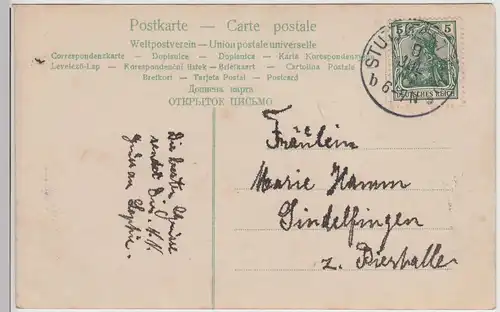 Postkarte – Carte postale
Weltpostverein – Union postale universelle
Correspondenzkarte – Dopisnice – Dopisnica – Karta Korespondencyjna
Levelező-Lap – Korespondenční lístek – Brefkort – Cartolina Postale
Brevkort – Tarjeta Postal – Postcard
ОТКРЫТОЕ ПИСЬМО
5 5
DEUTSCHES REICH
STUTTG
Fräulein
Marie Hamm
Sindelfingen
z. Bierhalle
Die besten Grüsse
sendet Dir
Gruss an Sophie.